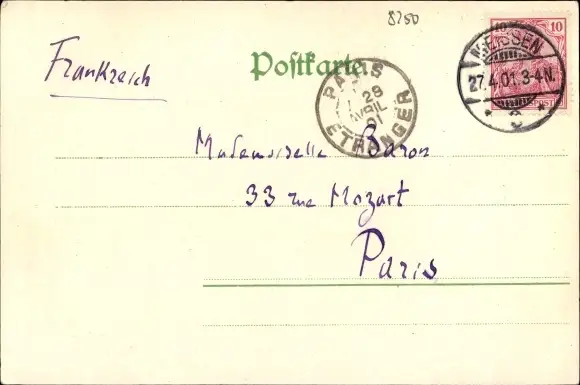 8250
Frankreich
Postkarte
10
MEISSEN
27.4.01.3-4N.
* c *
PARIS
28
AVRIL
01
ETRANGER
Mademoiselle Baron
33 rue Mozart
Paris